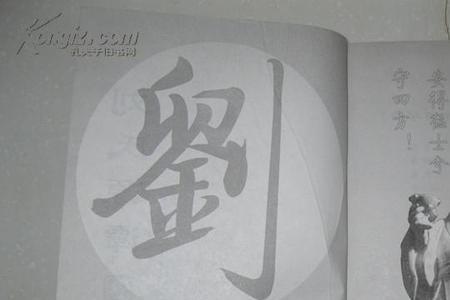 Kongfz.com
孔夫子旧书网
劉
安得猛士兮
守四方！